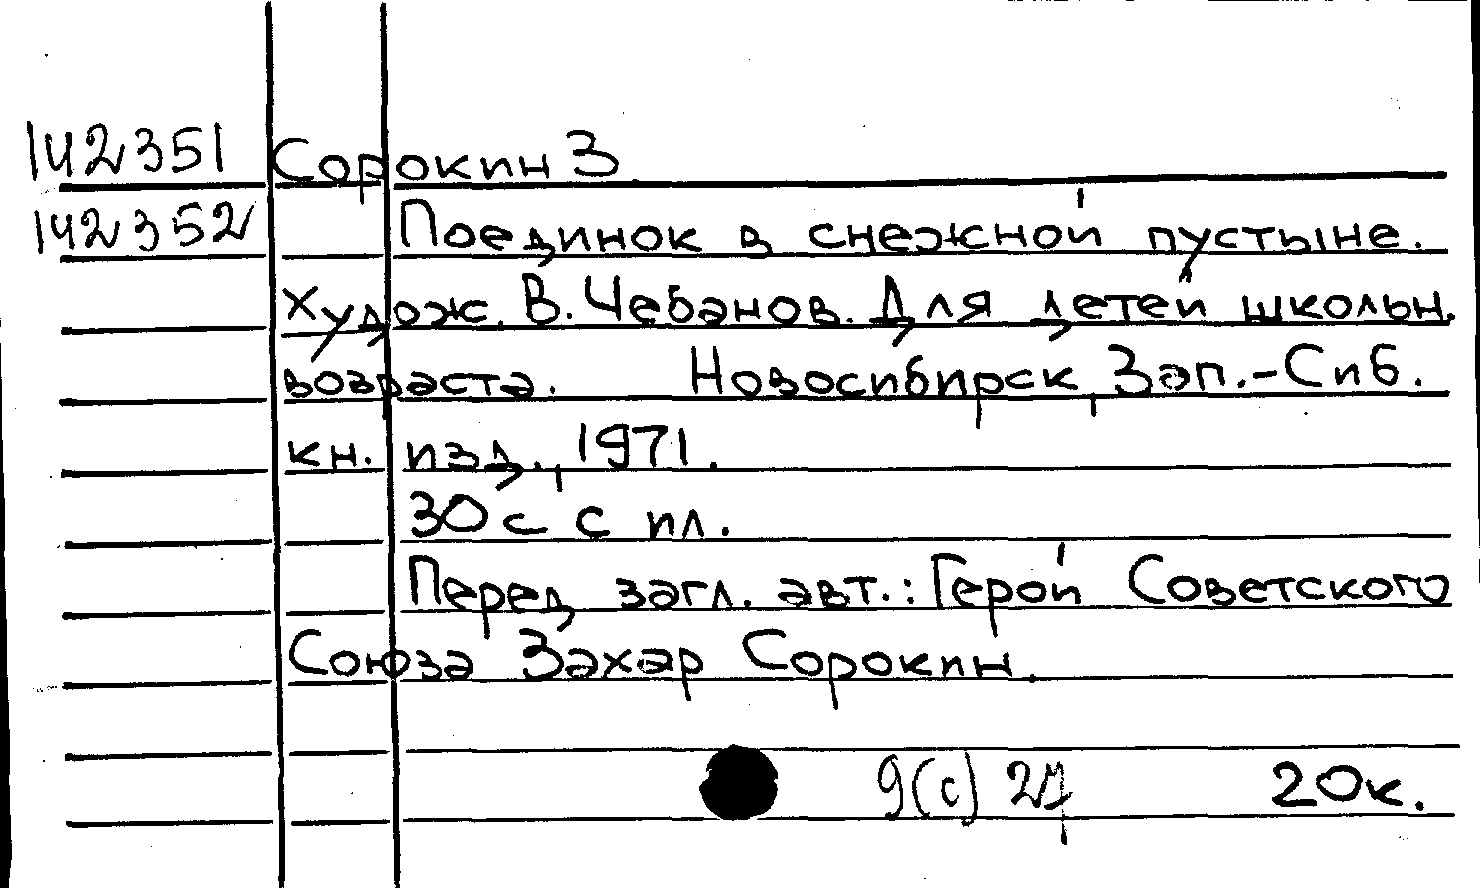 142351 Сорокин З.
142352 Поединок в снежной пустыне.
Худож. В. Чебанов. Для детей школьн.
возраста. Новосибирск, Зап.-Сиб.
кн. изд., 1971.
30 с с ил.
Перед загл. авт.: Герой Советского
Союза Захар Сорокин.
9(с)27 20к.